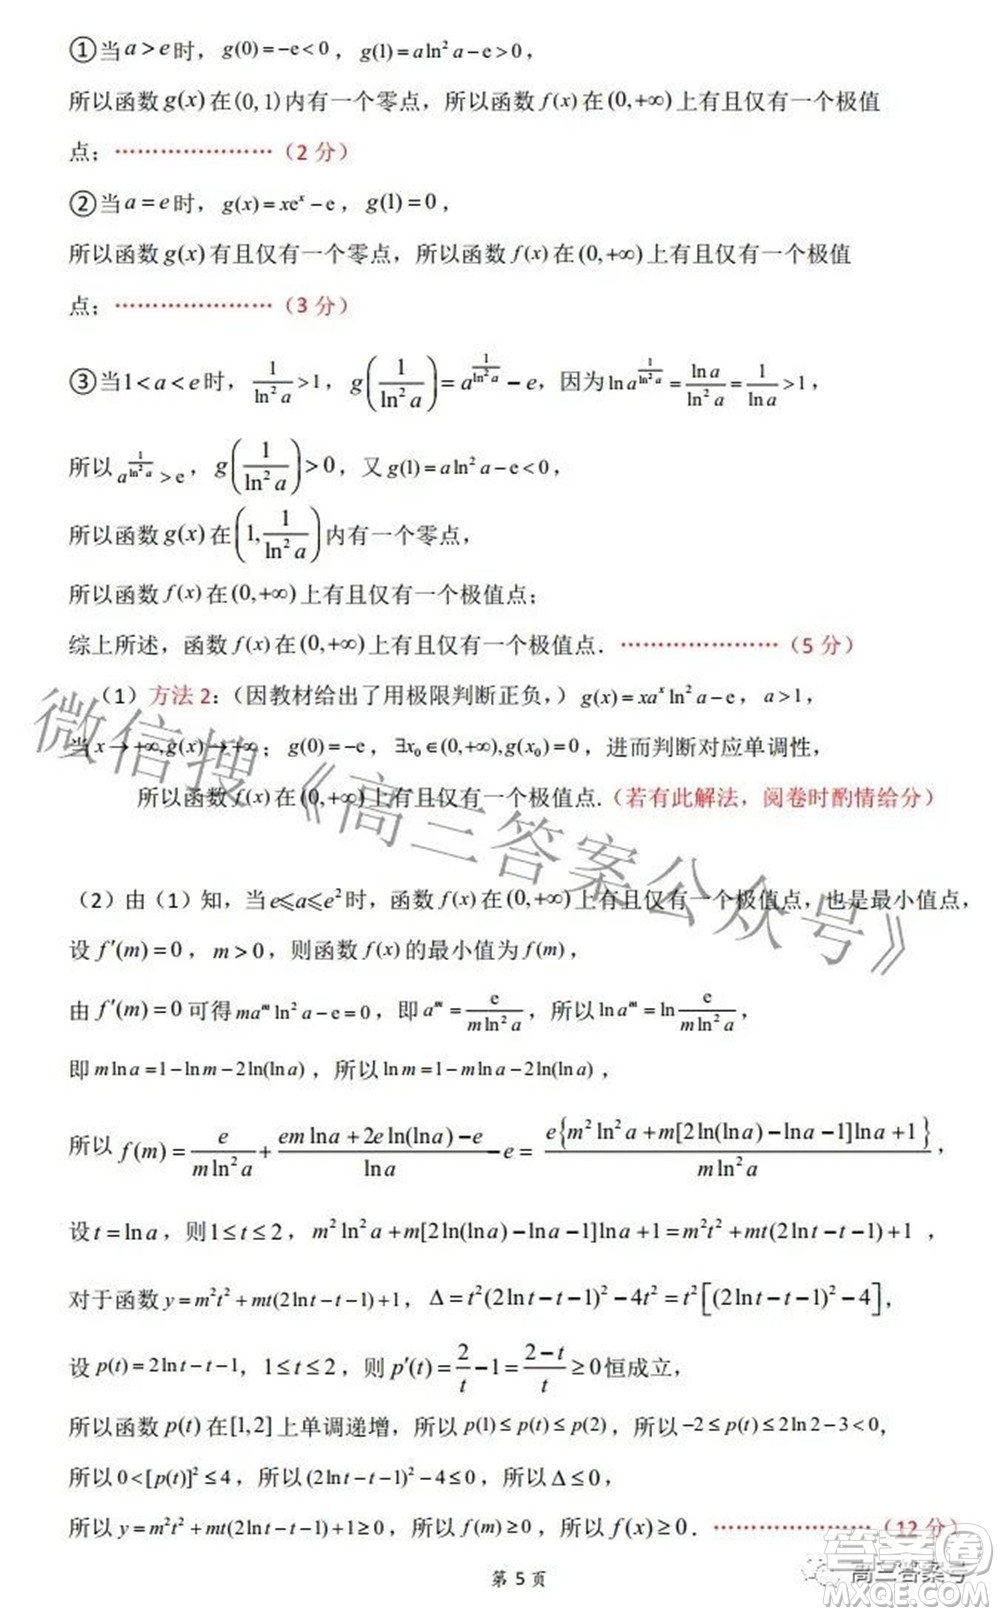 ①当 a > e 时，g(0) = −e < 0，g(1) = aln² a − e > 0，
所以函数 g(x) 在 (0, 1) 内有一个零点，所以函数 f(x) 在 (0, +∞) 上有且仅有一个极值
点；…………………（2 分）
②当 a = e 时，g(x) = xeˣ − e，g(1) = 0，
所以函数 g(x) 有且仅有一个零点，所以函数 f(x) 在 (0, +∞) 上有且仅有一个极值
点；…………………（3 分）
③当 1 < a < e 时，1/ln² a > 1，g(1/ln² a) = a^(1/ln² a) − e，因为 ln a^(1/ln² a) = ln a/ln² a = 1/ln a > 1，
所以 a^(1/ln² a) > e，g(1/ln² a) > 0，又 g(1) = aln² a − e < 0，
所以函数 g(x) 在 (1, 1/ln² a) 内有一个零点，
所以函数 f(x) 在 (0, +∞) 上有且仅有一个极值点；
综上所述，函数 f(x) 在 (0, +∞) 上有且仅有一个极值点．…………………（5 分）
（1）方法 2：（因教材给出了用极限判断正负，）g(x) = xaˣ ln² a − e，a > 1，
当 x → +∞, g(x) → +∞；g(0) = −e，∃x₀ ∈ (0, +∞), g(x₀) = 0，进而判断对应单调性，
所以函数 f(x) 在 (0, +∞) 上有且仅有一个极值点.（若有此解法，阅卷时酌情给分）
（2）由（1）知，当 e ⩽ a ⩽ e² 时，函数 f(x) 在 (0, +∞) 上有且仅有一个极值点，也是最小值点，
设 f′(m) = 0，m > 0，则函数 f(x) 的最小值为 f(m)，
由 f′(m) = 0 可得 maᵐ ln² a − e = 0，即 aᵐ = e/(m ln² a)，所以 ln aᵐ = ln e/(m ln² a)，
即 m ln a = 1 − ln m − 2ln(ln a)，所以 ln m = 1 − m ln a − 2ln(ln a)，
所以 f(m) = e/(m ln² a) + (em ln a + 2e ln(ln a) − e)/ln a − e = e{m² ln² a + m[2ln(ln a) − ln a − 1]ln a + 1}/(m ln² a)，
设 t = ln a，则 1 ≤ t ≤ 2，m² ln² a + m[2ln(ln a) − ln a − 1]ln a + 1 = m²t² + mt(2ln t − t − 1) + 1，
对于函数 y = m²t² + mt(2ln t − t − 1) + 1，Δ = t²(2ln t − t − 1)² − 4t² = t²[(2ln t − t − 1)² − 4]，
设 p(t) = 2ln t − t − 1，1 ≤ t ≤ 2，则 p′(t) = 2/t − 1 = (2 − t)/t ≥ 0 恒成立，
所以函数 p(t) 在 [1, 2] 上单调递增，所以 p(1) ≤ p(t) ≤ p(2)，所以 −2 ≤ p(t) ≤ 2ln 2 − 3 < 0，
所以 0 < [p(t)]² ≤ 4，所以 (2ln t − t − 1)² − 4 ≤ 0，所以 Δ ≤ 0，
所以 y = m²t² + mt(2ln t − t − 1) + 1 ≥ 0，所以 f(m) ≥ 0，所以 f(x) ≥ 0．…………………（12 分）
第 5 页
微信搜《高三答案公众号》
高三答案号
答案圈
MXQE.COM